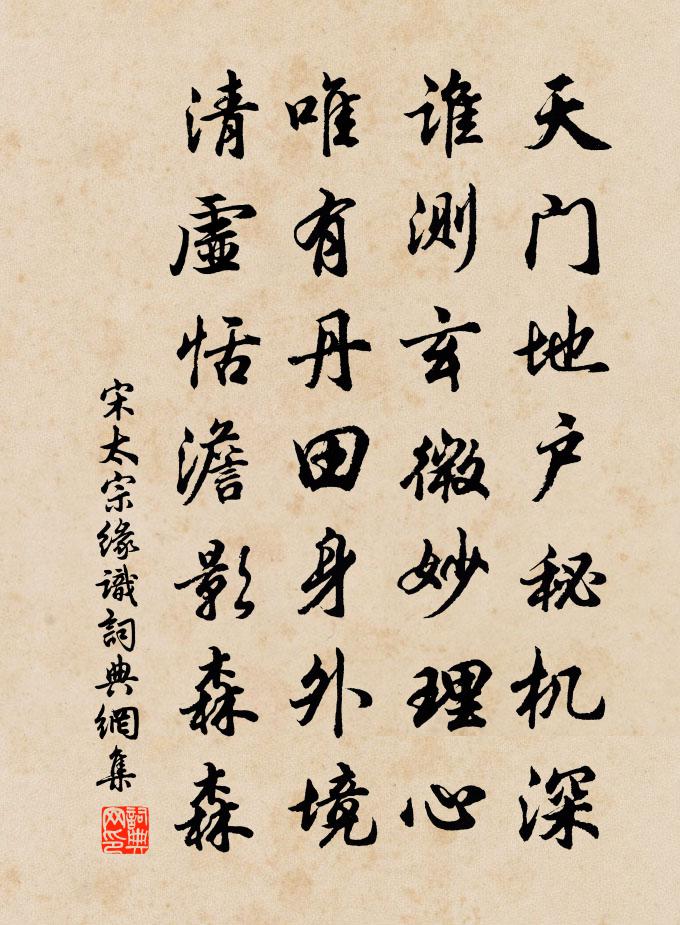 天门地户秘机深
谁测玄微妙理心
唯有丹田身外境
清虚恬澹影森森
宋太宗缘識詞典網集
詞典网印